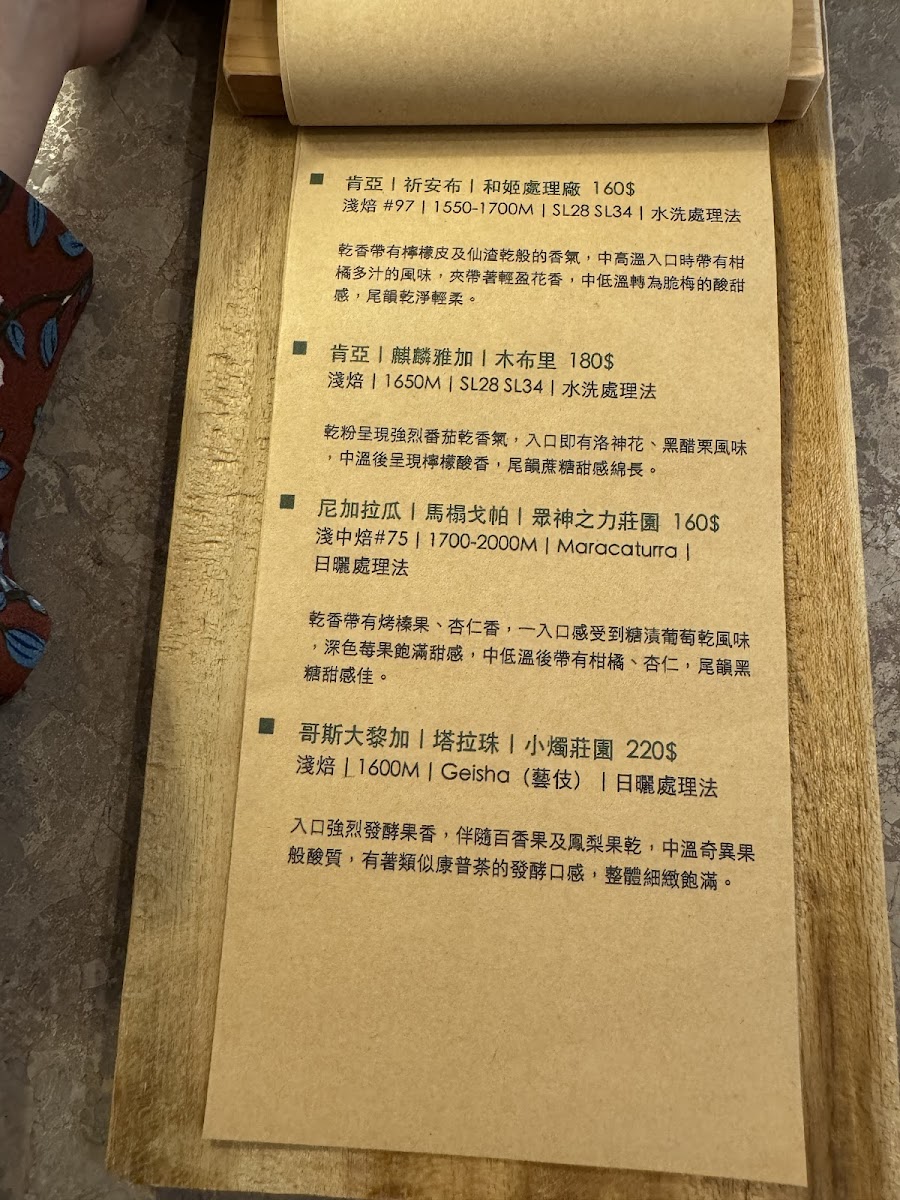 ■ 肯亞 | 祈安布 | 和姬處理廠 160$
淺焙 #97 | 1550-1700M | SL28 SL34 | 水洗處理法
乾香帶有檸檬皮及仙渣乾般的香氣，中高溫入口時帶有柑
橘多汁的風味，夾帶著輕盈花香，中低溫轉為脆梅的酸甜
感，尾韻乾淨輕柔。
■ 肯亞 | 麒麟雅加 | 木布里 180$
淺焙 | 1650M | SL28 SL34 | 水洗處理法
乾粉呈現強烈番茄乾香氣，入口即有洛神花、黑醋栗風味
，中溫後呈現檸檬酸香，尾韻蔗糖甜感綿長。
■ 尼加拉瓜 | 馬榻戈帕 | 眾神之力莊園 160$
淺中焙#75 | 1700-2000M | Maracaturra |
日曬處理法
乾香帶有烤榛果、杏仁香，一入口感受到糖漬葡萄乾風味
，深色莓果飽滿甜感，中低溫後帶有柑橘、杏仁，尾韻黑
糖甜感佳。
■ 哥斯大黎加 | 塔拉珠 | 小燭莊園 220$
淺焙 | 1600M | Geisha（藝伎） | 日曬處理法
入口強烈發酵果香，伴隨百香果及鳳梨果乾，中溫奇異果
般酸質，有著類似康普茶的發酵口感，整體細緻飽滿。